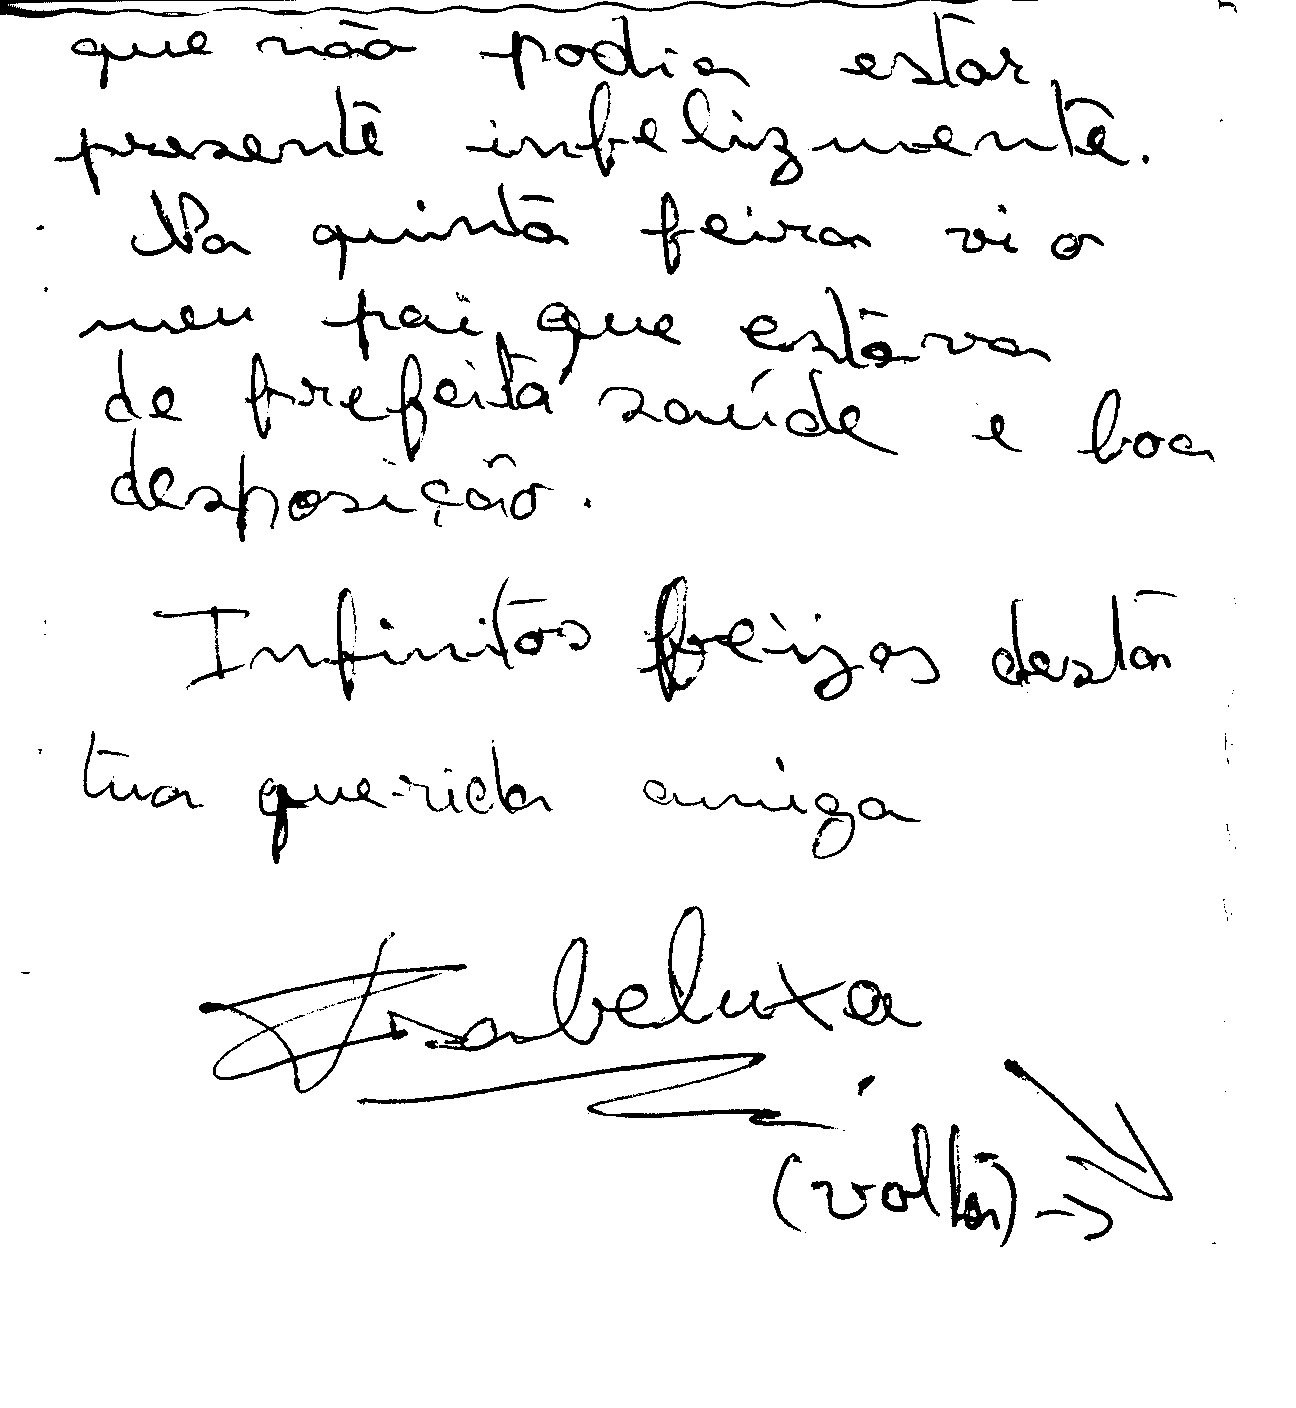 que não podia estar
presente infelizmente.
Na quinta feira vi o
meu pai, que estava
de prefeita saúde e boa
desposição.
Infinitos beizos desta
tua querida amiga
Isabeluxa
(volta) →